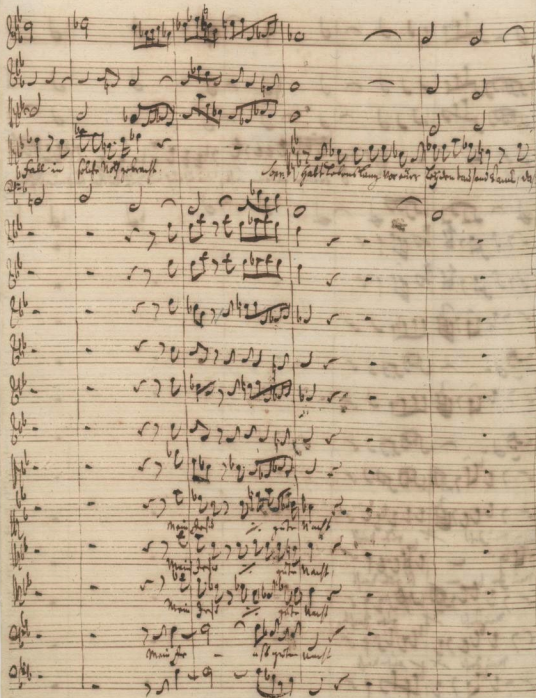 Fall in solche Noth gebracht.
Habt Lebens lang vor euer Leyden tausend
Mein Jesu ·/· gute Nacht
Mein Jesu ·/· gute Nacht
Mein Jesu ·/· gute Nacht
Mein Je - su gute Nacht